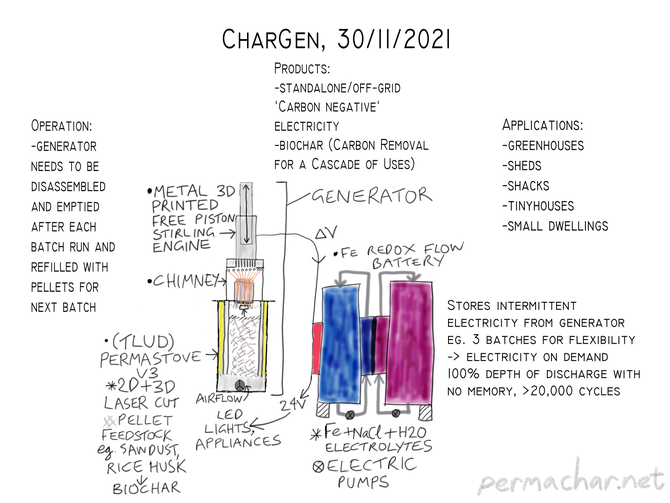 CharGen, 30/11/2021
Products:
-standalone/off-grid
'Carbon negative'
electricity
-biochar (Carbon Removal
for a Cascade of Uses)
Operation:
-generator
needs to be
disassembled
and emptied
after each
batch run and
refilled with
pellets for
next batch
Applications:
-greenhouses
-sheds
-shacks
-tinyhouses
-small dwellings
•METAL 3D
PRINTED
FREE PISTON
STIRLING
ENGINE
GENERATOR
ΔV
•CHIMNEY
•Fe REDOX FLOW
BATTERY
Stores intermittent
electricity from generator
eg. 3 batches for flexibility
-> electricity on demand
100% depth of discharge with
no memory, >20,000 cycles
•(TLUD)
PERMASTOVE
V3
*2D+3D
LASER CUT
PELLET
FEEDSTOCK
eg. SAWDUST,
RICE HUSK
↓
BIOCHAR
AIRFLOW
24V
LED
LIGHTS,
APPLIANCES
*Fe+NaCl+H2O
ELECTROLYTES
⊗ELECTRIC
PUMPS
permachar.net